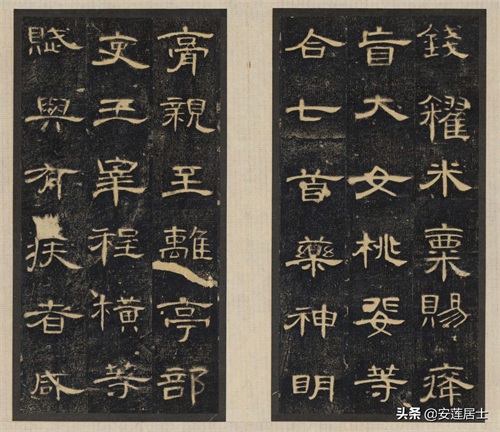 錢糴米粟賜癃
盲大女桃婓等
合七首藥神明
膏親至離亭部
吏王皋程橫等
賦與有疾者咸
头条 @安莲居士